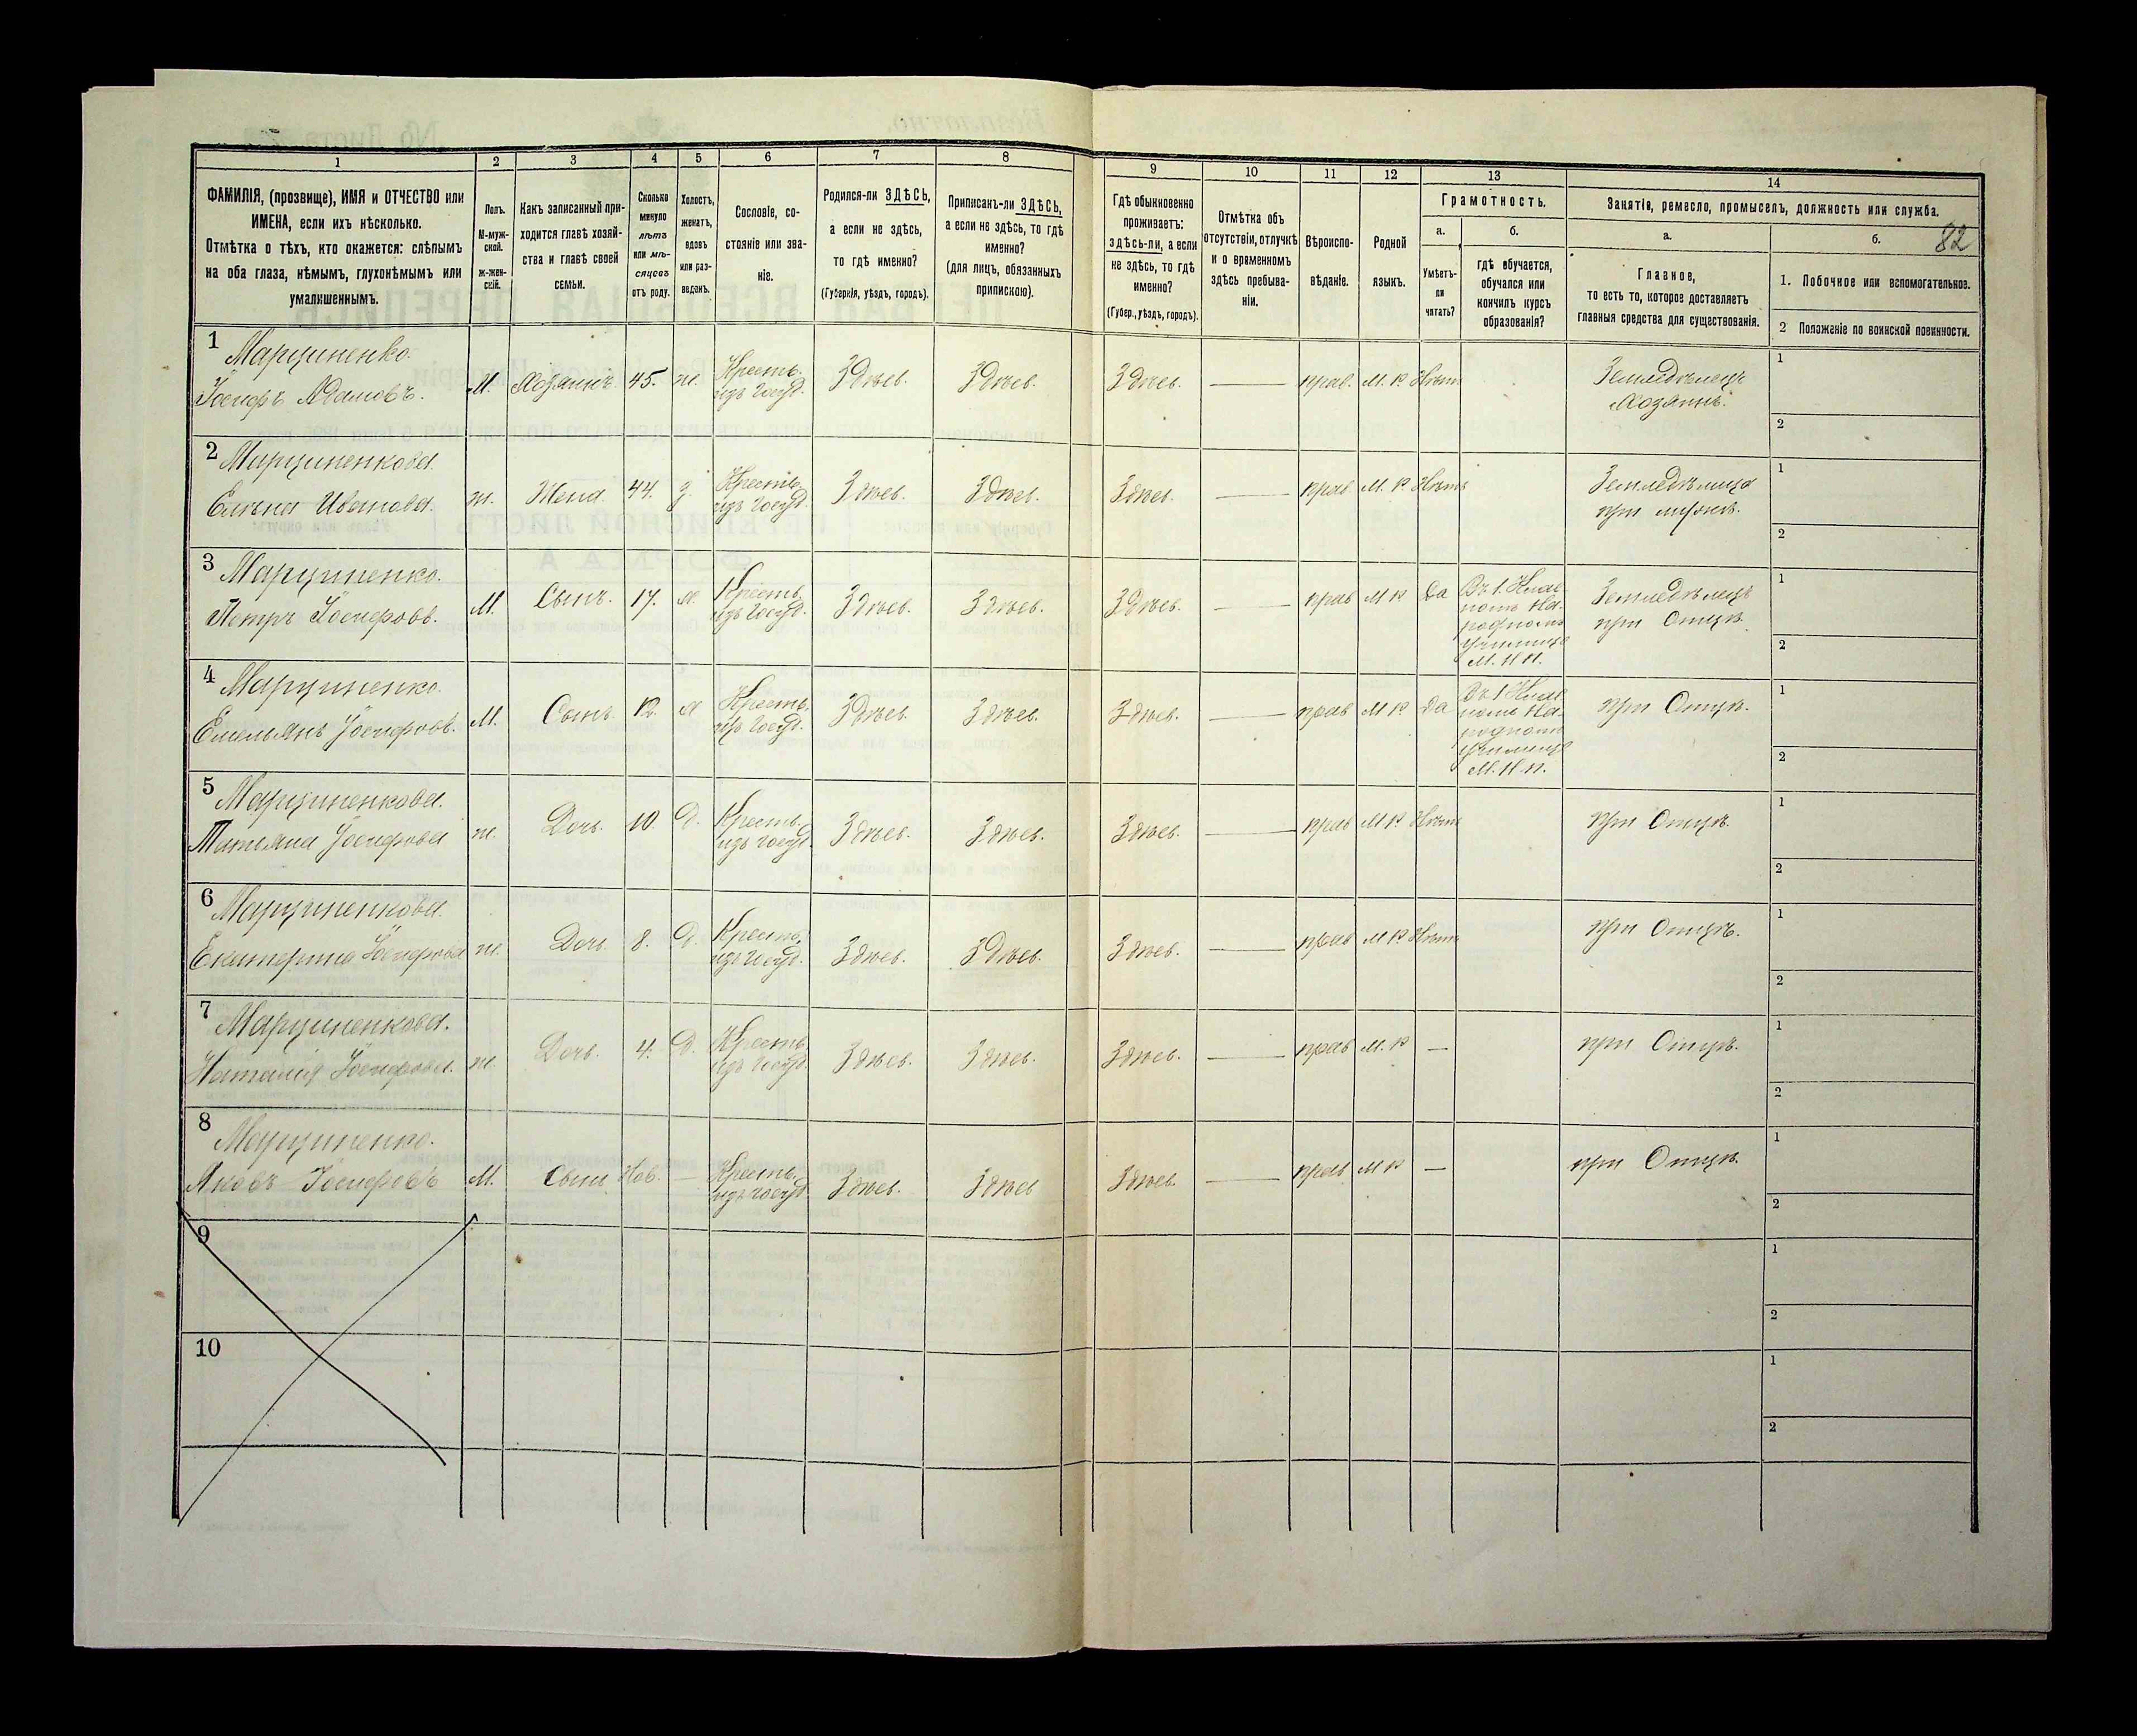 82
1 2 3 4 5 6 7 8 9 10 11 12 13 14
ФАМИЛІЯ, (прозвище), ИМЯ и ОТЧЕСТВО или
ИМЕНА, если ихъ нѣсколько.
Отмѣтка о тѣхъ, кто окажется: слѣпымъ
на оба глаза, нѣмымъ, глухонѣмымъ или
умалишеннымъ.
Полъ.
М-муж-
ской.
ж-жен-
скій.
Какъ записанный при-
ходится главѣ хозяй-
ства и главѣ своей
семьи.
Сколько
минуло
лѣтъ
или мѣ-
сяцевъ
отъ роду.
Холостъ,
женатъ,
вдовъ
или раз-
веденъ.
Сословіе, со-
стояніе или зва-
ніе.
Родился-ли ЗДѢСЬ,
а если не здѣсь,
то гдѣ именно?
(Губернія, уѣздъ, городъ).
Приписанъ-ли ЗДѢСЬ,
а если не здѣсь, то гдѣ
именно?
(для лицъ, обязанныхъ
припискою).
Гдѣ обыкновенно
проживаетъ:
здѣсь-ли, а если
не здѣсь, то гдѣ
именно?
(Губер., уѣздъ, городъ).
Отмѣтка объ
отсутствіи, отлучкѣ
и о временномъ
здѣсь пребыва-
ніи.
Вѣроиспо-
вѣданіе.
Родной
языкъ.
Грамотность.
а.
Умѣетъ-
ли
читать?
б.
гдѣ обучается,
обучался или
кончилъ курсъ
образованія?
Занятіе, ремесло, промыселъ, должность или служба.
а.
Главное,
то есть то, которое доставляетъ
главныя средства для существованія.
б.
1. Побочное или вспомогательное.
2 Положеніе по воинской повинности.
1 Марциненко.
Іосифъ Адамовъ.
М. Хозяинъ 45. ж. Крестъ.
изъ Госуд. Здѣсь. Здѣсь. Здѣсь. — прав. М. Р. Нѣтъ
Земледѣлецъ
Хозяинъ.
1
2
2 Марциненкова.
Елена Иванова.
ж. Жена. 44. З. Крестъ.
изъ Госуд. Здѣсь. Здѣсь. Здѣсь. — прав М. Р. Нѣтъ
Земледѣлица
при мужѣ.
1
2
3 Марциненко.
Петръ Іосифовъ.
М. Сынъ. 17. Х. Крестъ.
изъ Госуд. Здѣсь. Здѣсь. Здѣсь. — прав М Р Да
Въ 1. Клас
номъ На-
родномъ
Училищѣ
М. Н П.
Земледѣлецъ
при Отцѣ.
1
2
4 Марциненко.
Емельянъ Іосифовъ.
М. Сынъ. 12. Х Крестъ.
изъ Госуд. Здѣсь. Здѣсь. Здѣсь. — прав М Р. Да
Въ 1 Клас
номъ На-
родномъ
Училищѣ
М. Н. П.
при Отцѣ.
1
2
5 Марциненкова.
Татьяна Іосифова
ж. Дочь. 10. Д. Крестъ.
изъ Госуд. Здѣсь. Здѣсь. Здѣсь. — прав М Р. Нѣтъ
при Отцѣ.
1
2
6 Марциненкова.
Екатерина Іосифова
ж. Дочь. 8. Д. Крестъ.
изъ Госуд. Здѣсь. Здѣсь. Здѣсь. — прав М Р. Нѣтъ
при Отцѣ.
1
2
7 Марциненкова.
Наталія Іосифова.
ж. Дочь. 4. Д. Крестъ
изъ Госуд. Здѣсь. Здѣсь. Здѣсь. — прав М. Р —
при Отцѣ.
1
2
8 Марциненко.
Яковъ Іосифовъ
М. Сынъ Нов. — Крестъ.
изъ Госуд Здѣсь. Здѣсь Здѣсь. — прав М Р —
при Отцѣ.
1
2
9
1
2
10
1
2